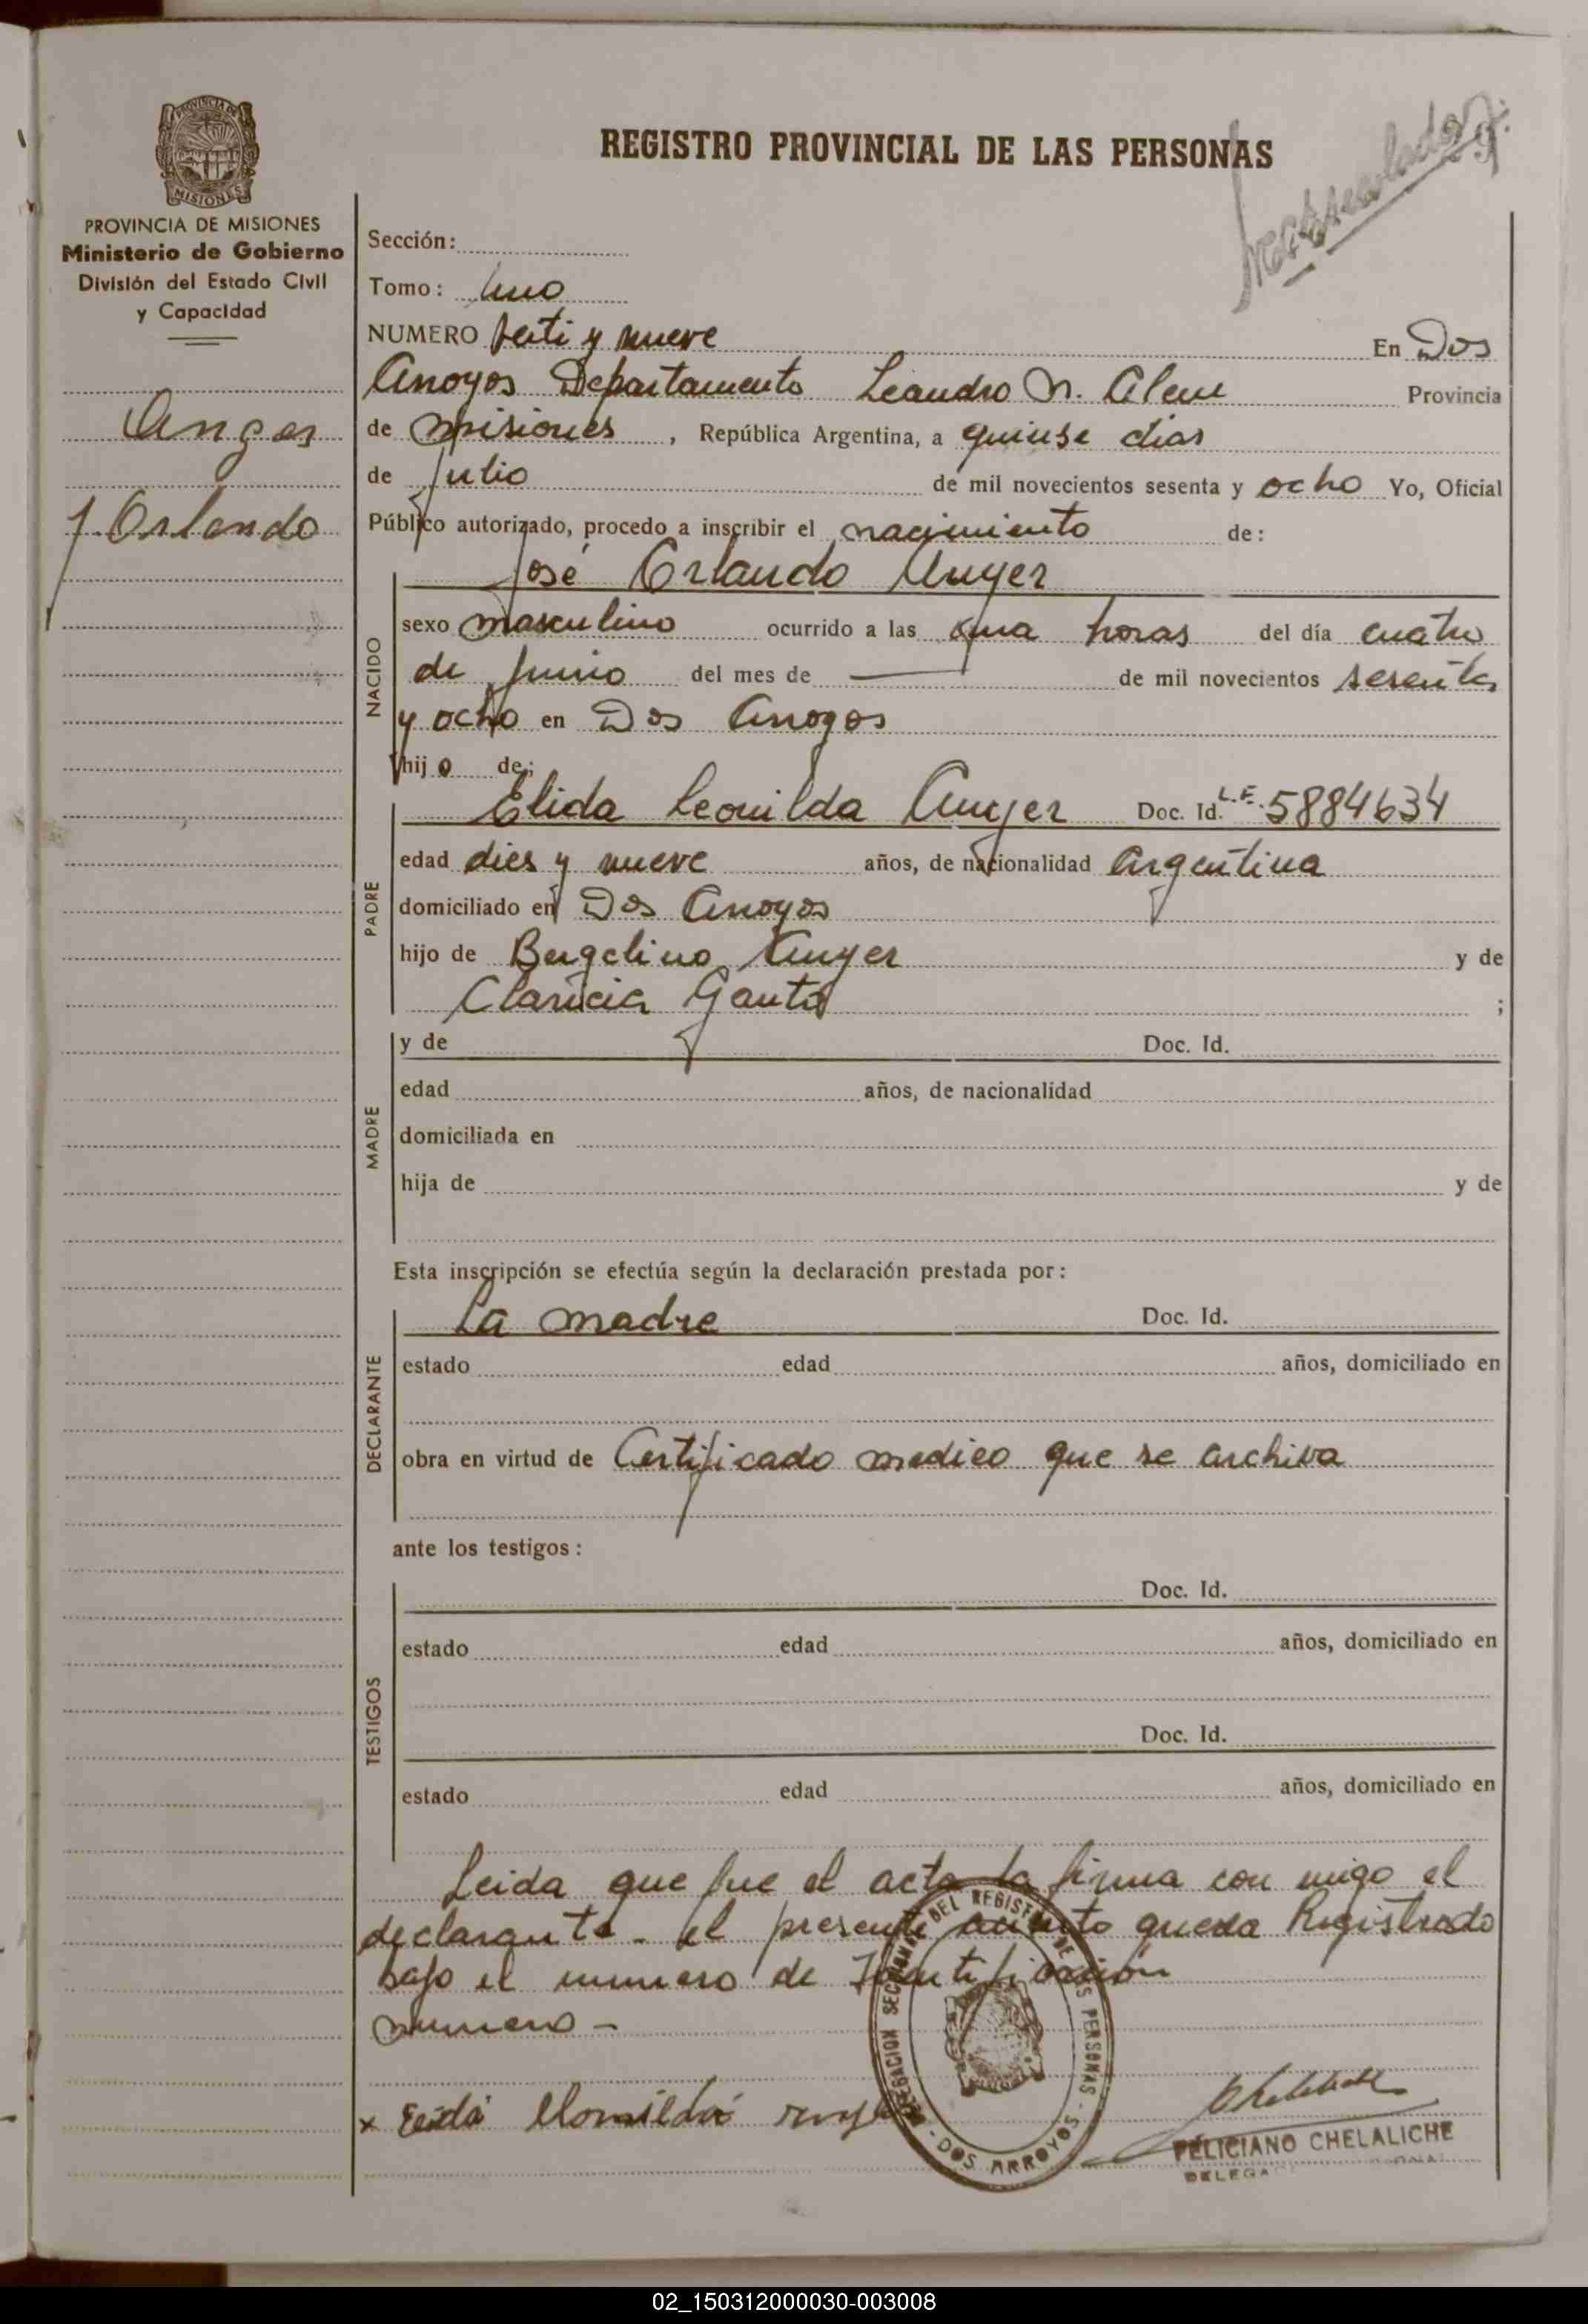 REGISTRO PROVINCIAL DE LAS PERSONAS
PROVINCIA DE
MISIONES
PROVINCIA DE MISIONES
Ministerio de Gobierno
División del Estado Civil
y Capacidad
J. Orlando
Sección:
Tomo: Uno
NUMERO y nueve En Dos
Arroyos Departamento Leandro N. Alem Provincia
de Misiones, República Argentina, a quinse dias
de Julio de mil novecientos sesenta y ocho Yo, Oficial
Público autorizado, procedo a inscribir el nacimiento de:
José Orlando
NACIDO
sexo masculino ocurrido a las una horas del día cuatro
de Junio del mes de — de mil novecientos sesenta
y ocho en Dos Arroyos
hijo de:
PADRE
Elida Leonilda Doc. Id. L.E. 5884634
edad dies y nueve años, de nacionalidad Argentina
domiciliado en Dos Arroyos
hijo de y de
;
MADRE
y de Doc. Id.
edad años, de nacionalidad
domiciliada en
hija de y de
Esta inscripción se efectúa según la declaración prestada por:
DECLARANTE
La madre Doc. Id.
estado edad años, domiciliado en
obra en virtud de Certificado medico que se archiva
ante los testigos:
TESTIGOS
Doc. Id.
estado edad años, domiciliado en
Doc. Id.
estado edad años, domiciliado en
Leida que fue el acta la firma con migo el
declarante. el presente queda Registrado
bajo el numero de Identificación
numero -
DELEGACION SECCIONAL DEL REGISTRO DE LAS PERSONAS - DOS ARROYOS -
FELICIANO CHELALICHE
02_150312000030-003008